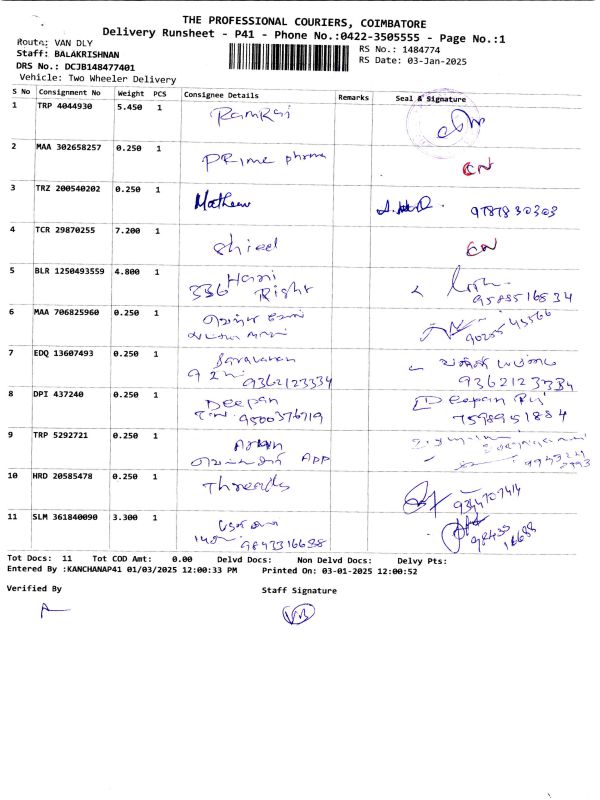 THE PROFESSIONAL COURIERS, COIMBATORE
Delivery Runsheet - P41 - Phone No.:0422-3505555 - Page No.:1
Route: VAN DLY
RS No.: 1484774
Staff: BALAKRISHNAN
RS Date: 03-Jan-2025
DRS No.: DCJB148477401
Vehicle: Two Wheeler Delivery
S No Consignment No Weight PCS Consignee Details Remarks Seal & Signature
1 TRP 4044930 5.450 1 Ramraj
2 MAA 302658257 0.250 1 PRIME pharma CN
3 TRZ 200540202 0.250 1 Mathew 9787830303
4 TCR 29870255 7.200 1 Shied CN
5 BLR 1250493559 4.800 1 Hani
336 Right 9585516834
6 MAA 706825960 0.250 1
7 EDQ 13607493 0.250 1 Saravanan
9362123334 9362123334
8 DPI 437240 0.250 1 Deepan Deepan
9500376719 7598951884
9 TRP 5292721 0.250 1
APP
10 HRD 20585478 0.250 1 Threads
11 SLM 361840090 3.300 1
9843316688 98433
16688
Tot Docs: 11 Tot COD Amt: 0.00 Delvd Docs: Non Delvd Docs: Delvy Pts:
Entered By :KANCHANAP41 01/03/2025 12:00:33 PM Printed On: 03-01-2025 12:00:52
Verified By Staff Signature